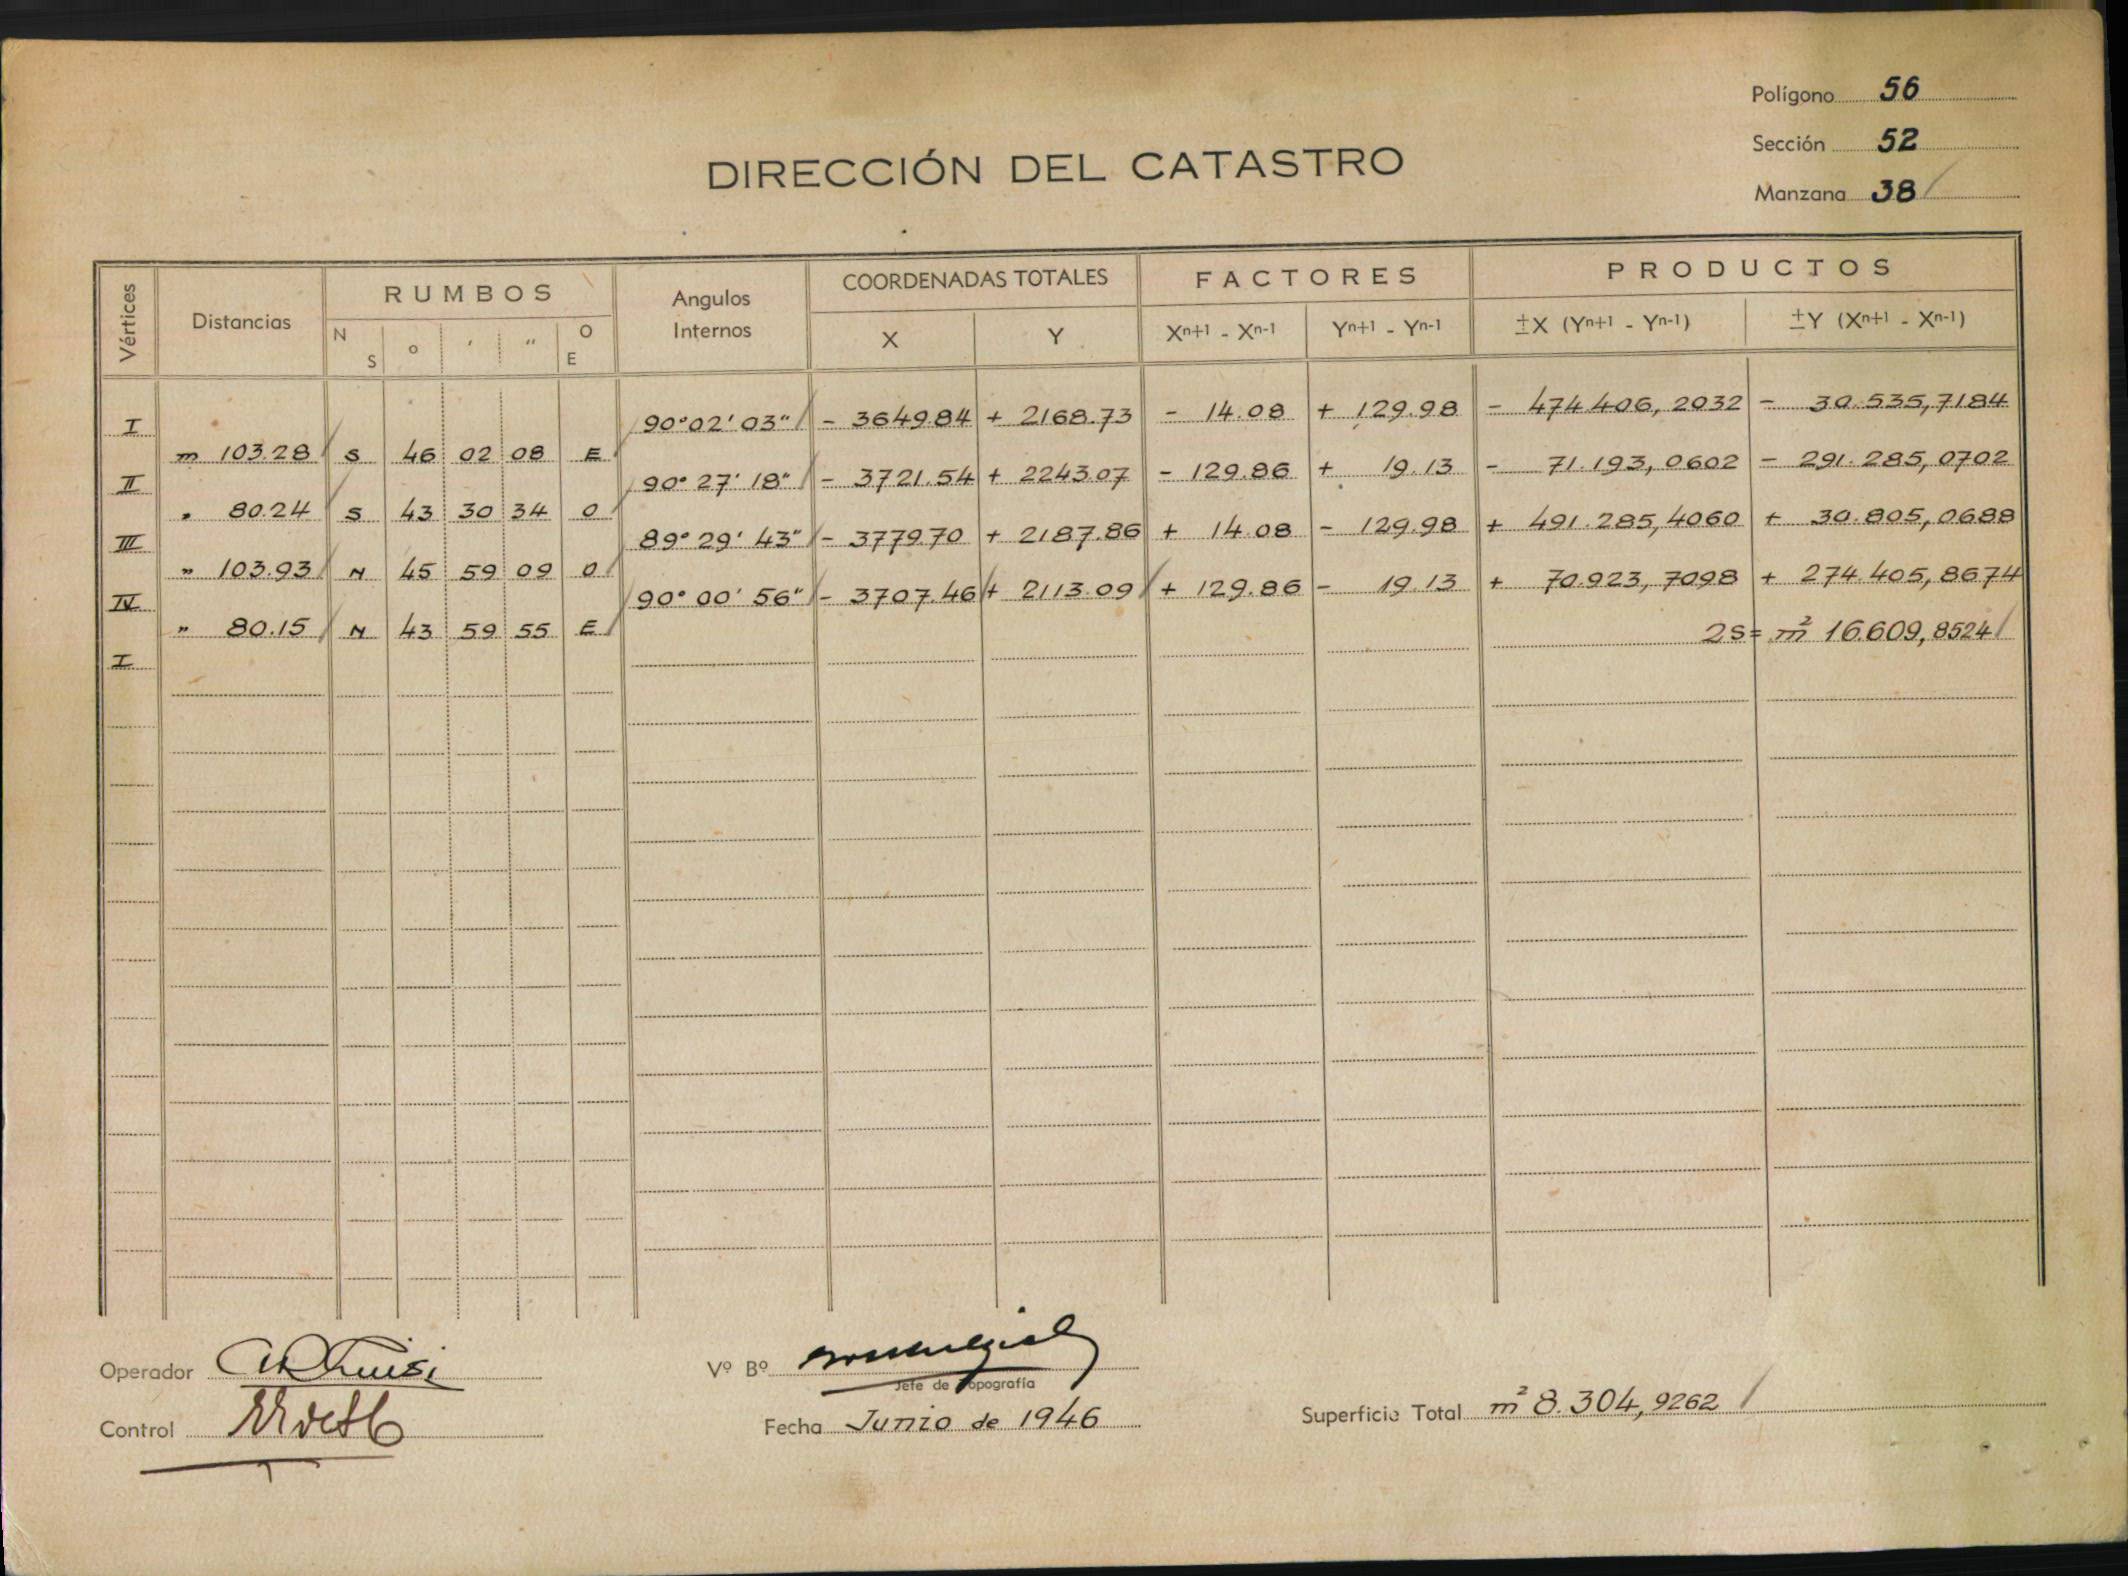 Polígono 56
Sección 52
Manzana 38
DIRECCIÓN DEL CATASTRO
Vértices Distancias RUMBOS Angulos Internos COORDENADAS TOTALES FACTORES PRODUCTOS
N S o ′ ″ O E X Y Xⁿ⁺¹ - Xⁿ⁻¹ Yⁿ⁺¹ - Yⁿ⁻¹ ±X (Yⁿ⁺¹ - Yⁿ⁻¹) ±Y (Xⁿ⁺¹ - Xⁿ⁻¹)
I 90°02'03" - 3649.84 + 2168.73 - 14.08 + 129.98 - 474.406,2032 - 30.535,7184
m 103.28 S 46 02 08 E
II 90°27'18" - 3721.54 + 2243.07 - 129.86 + 19.13 - 71.193,0602 - 291.285,0702
" 80.24 S 43 30 34 O
III 89°29'43" - 3779.70 + 2187.86 + 14.08 - 129.98 + 491.285,4060 + 30.805,0688
" 103.93 N 45 59 09 O
IV 90°00'56" - 3707.46 + 2113.09 + 129.86 - 19.13 + 70.923,7098 + 274.405,8674
" 80.15 N 43 59 55 E 2S= m² 16.609,8524
I
Operador
Vº Bº
Jefe de Topografía
Control
Fecha Junio de 1946
Superficie Total m² 8.304,9262